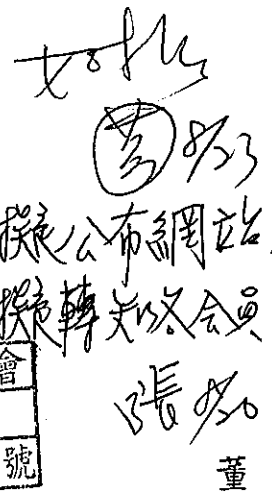 如擬
黃 8/23
擬公布網站
擬轉知各会員
張 8/20
會
號
董